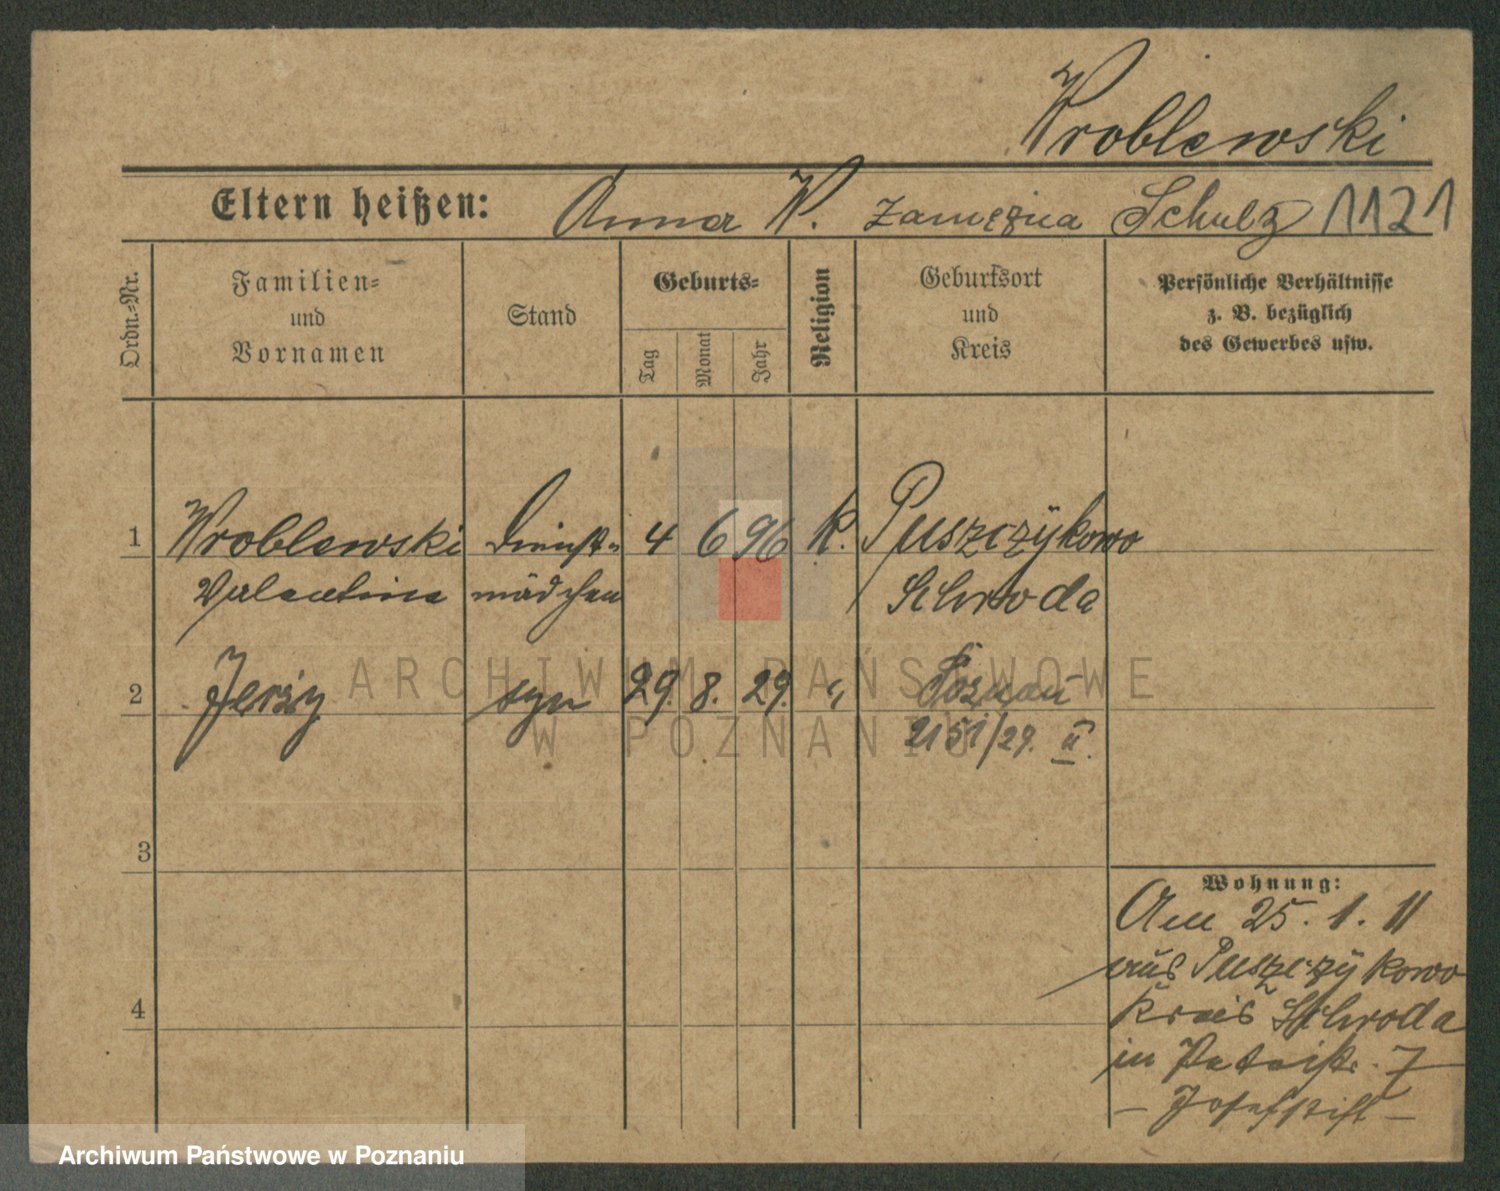 Wroblewski
Eltern heißen: Anna W. zamężna Schulz 1121
Ordn.-Nr.
Familien-
und
Vornamen
Stand
Geburts-
Tag
Monat
Jahr
Religion
Geburtsort
und
Kreis
Persönliche Verhältnisse
z. B. bezüglich
des Gewerbes usw.
1 Wroblewski Dienst- 4 6 96 K. Puszczykowo
Valentine mädchen Schroda
2 Jerzy syn 29. 8. 29. " Poznań
2151/29. II.
3
Wohnung:
Am 25. 1. 11
aus Puszczykowo
Kreis Schroda
4
in 7
- Josefstift -
ARCHIWUM PAŃSTWOWE
W POZNANIU
Archiwum Państwowe w Poznaniu